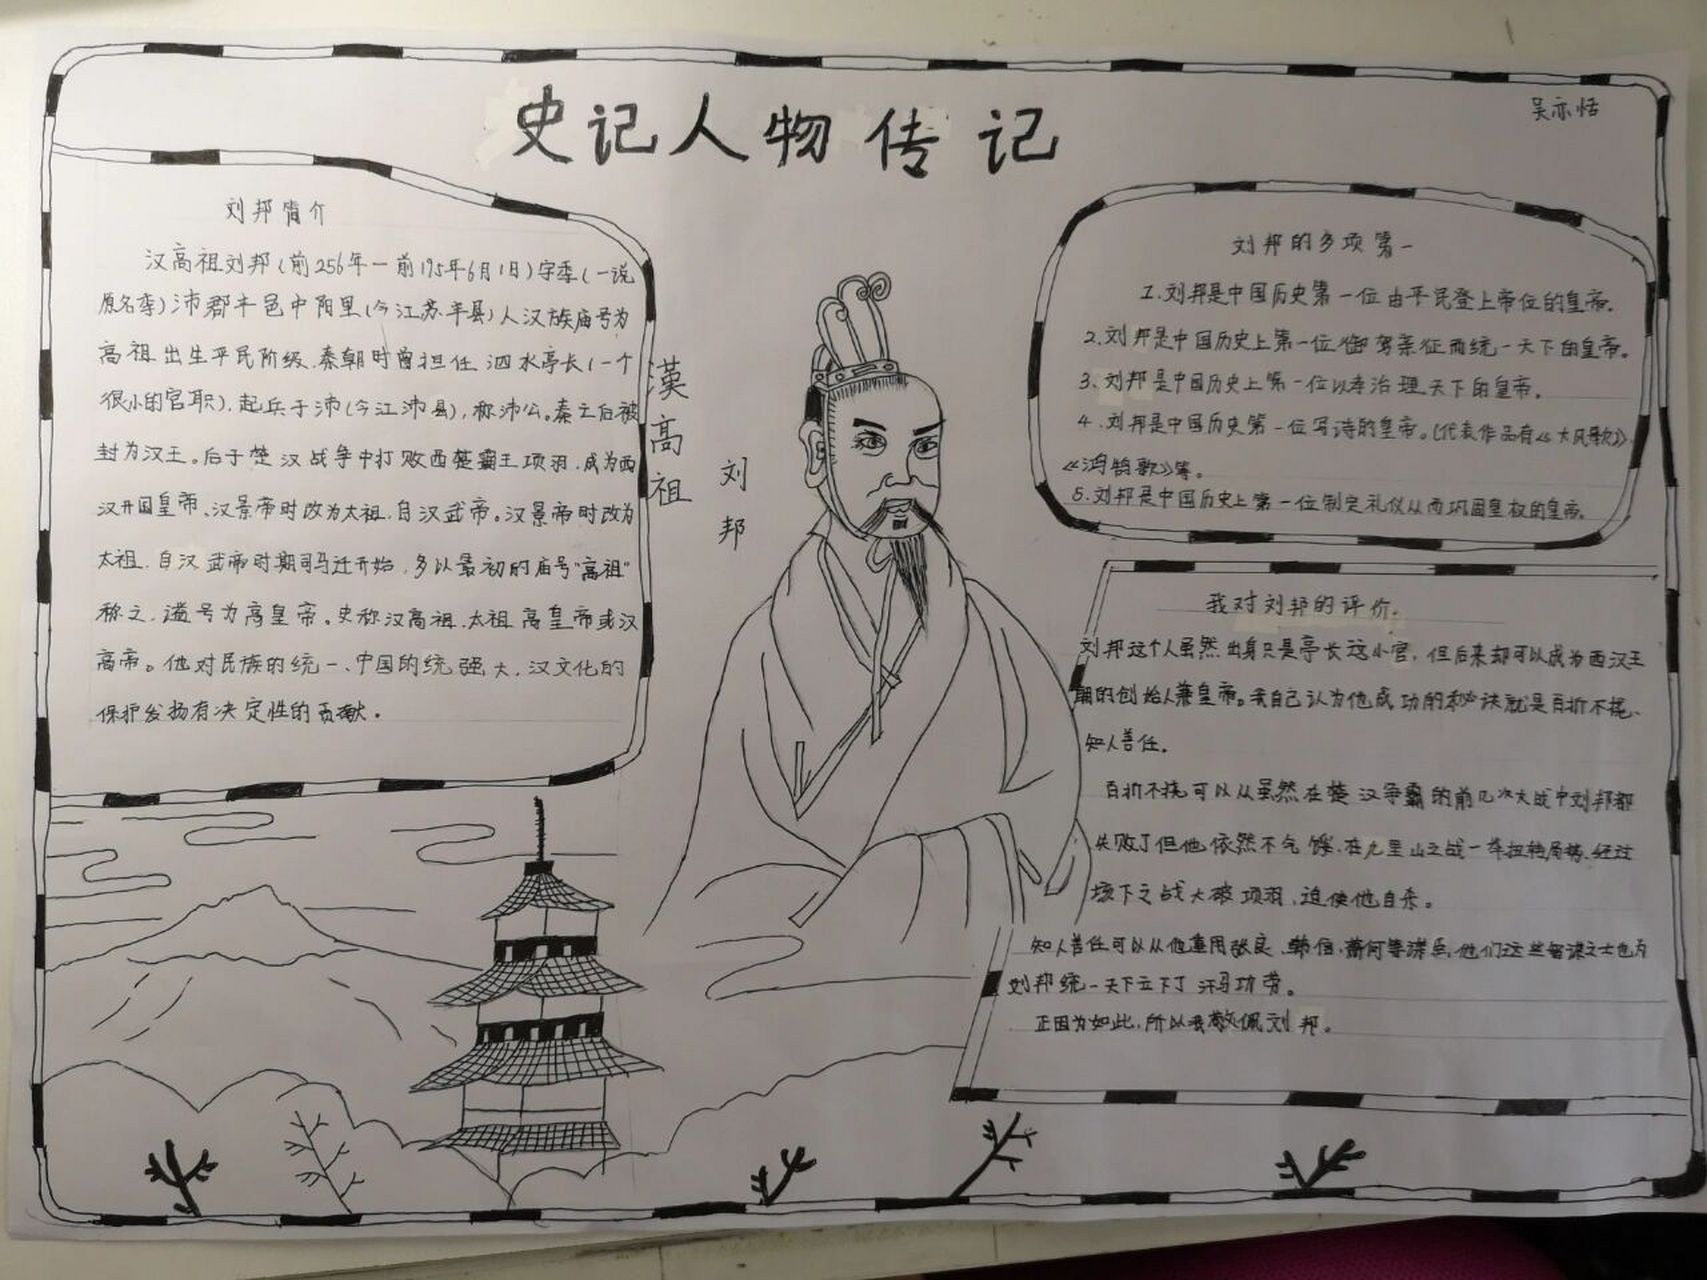 史记人物传记
吴亦恬
刘邦简介
汉高祖刘邦(前256年一前195年6月1日)字季(一说
原名季)沛郡丰邑中阳里(今江苏丰县)人汉族庙号为
高祖出生平民阶级.秦朝时曾担任泗水亭长(一个
很小的官职),起兵于沛(今江沛县),称沛公。秦之后被
封为汉王。后于楚汉战争中打败西楚霸王项羽,成为西
汉开国皇帝、汉景帝时改为太祖,自汉武帝。汉景帝时改为
太祖,自汉武帝时期司马迁开始,多以最初的庙号"高祖"
称之,谥号为高皇帝。史称汉高祖.太祖高皇帝或汉
高帝。他对民族的统一、中国的统强大,汉文化的
保护发扬有决定性的贡献.
漢高祖
刘邦
刘邦的多项第一
1.刘邦是中国历史第一位由平民登上帝位的皇帝.
2.刘邦是中国历史上第一位御驾亲征而统一天下的皇帝。
3、刘邦是中国历史上第一位以孝治理天下的皇帝.
4.刘邦是中国历史第一位写诗的皇帝。(代表作品有《大风歌》,
《鸿鹄歌》等。
5.刘邦是中国历史上第一位制定礼仪从而巩固皇权的皇帝.
我对刘邦的评价.
刘邦这个人虽然出身只是亭长这小官,但后来却可以成为西汉王
朝的创始人兼皇帝。我自己认为他成功的秘诀就是百折不挠、
知人善任.
百折不挠可以从虽然在楚汉争霸的前几次大战中刘邦都
失败了但他依然不气馁.在九里山之战一举扭转局势.经过
垓下之战大破项羽,迫使他自杀。
知人善任可以从他重用张良、韩信,萧何等谋臣,他们这些智谋之士也为
刘邦统一天下立下了汗马功劳。
正因为如此,所以我敬佩刘邦。